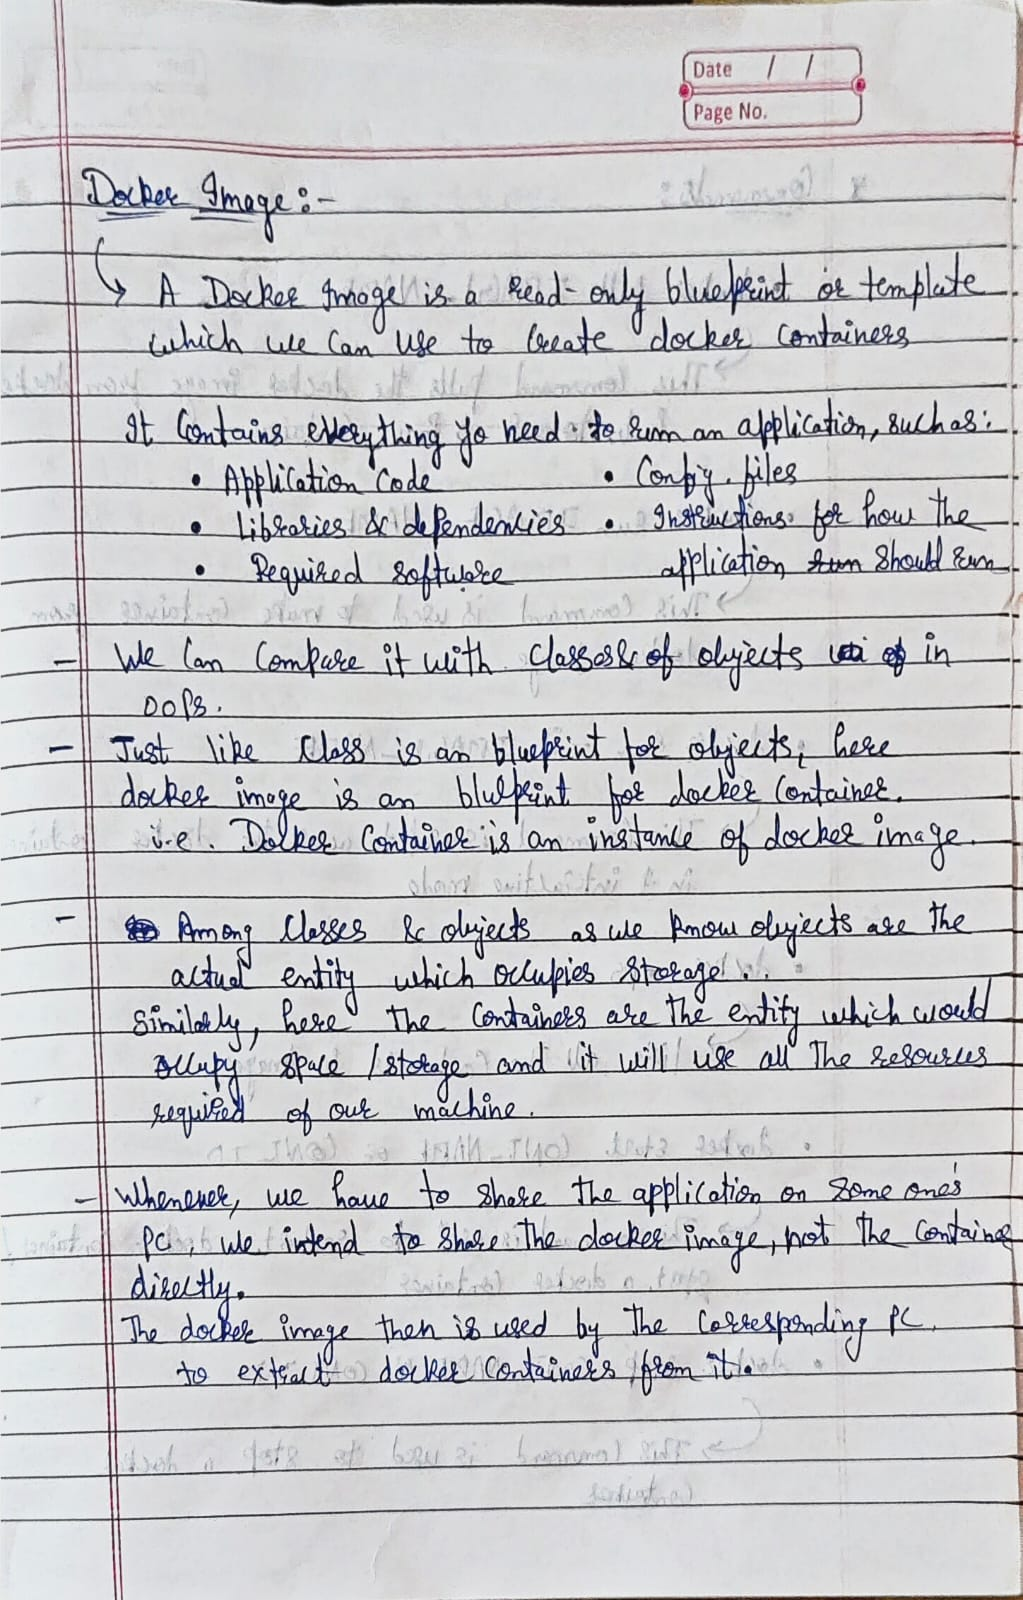 Date / /
Page No.
Docker Image :-
↳ A Docker Image is a read-only blueprint or template
which we can use to create docker containers
It contains everything yo need to run an application, such as:
• Application Code • Config. files
• Libraries & dependencies • Instructions for how the
• Required software application run should run
- We can compare it with classes & of objects of in
OOPs.
- Just like class is an blueprint for objects, here
docker image is an blueprint for docker container.
i.e. Docker container is an instance of docker image.
- Among classes & objects as we know objects are the
actual entity which occupies storage.
Similarly, here the containers are the entity which would
occupy space / storage and it will use all the resources
required of our machine.
- Whenever, we have to share the application on some one's
PC, we intend to share the docker image, not the container
directly.
The docker image then is used by the corresponding PC
to extract docker containers from it.